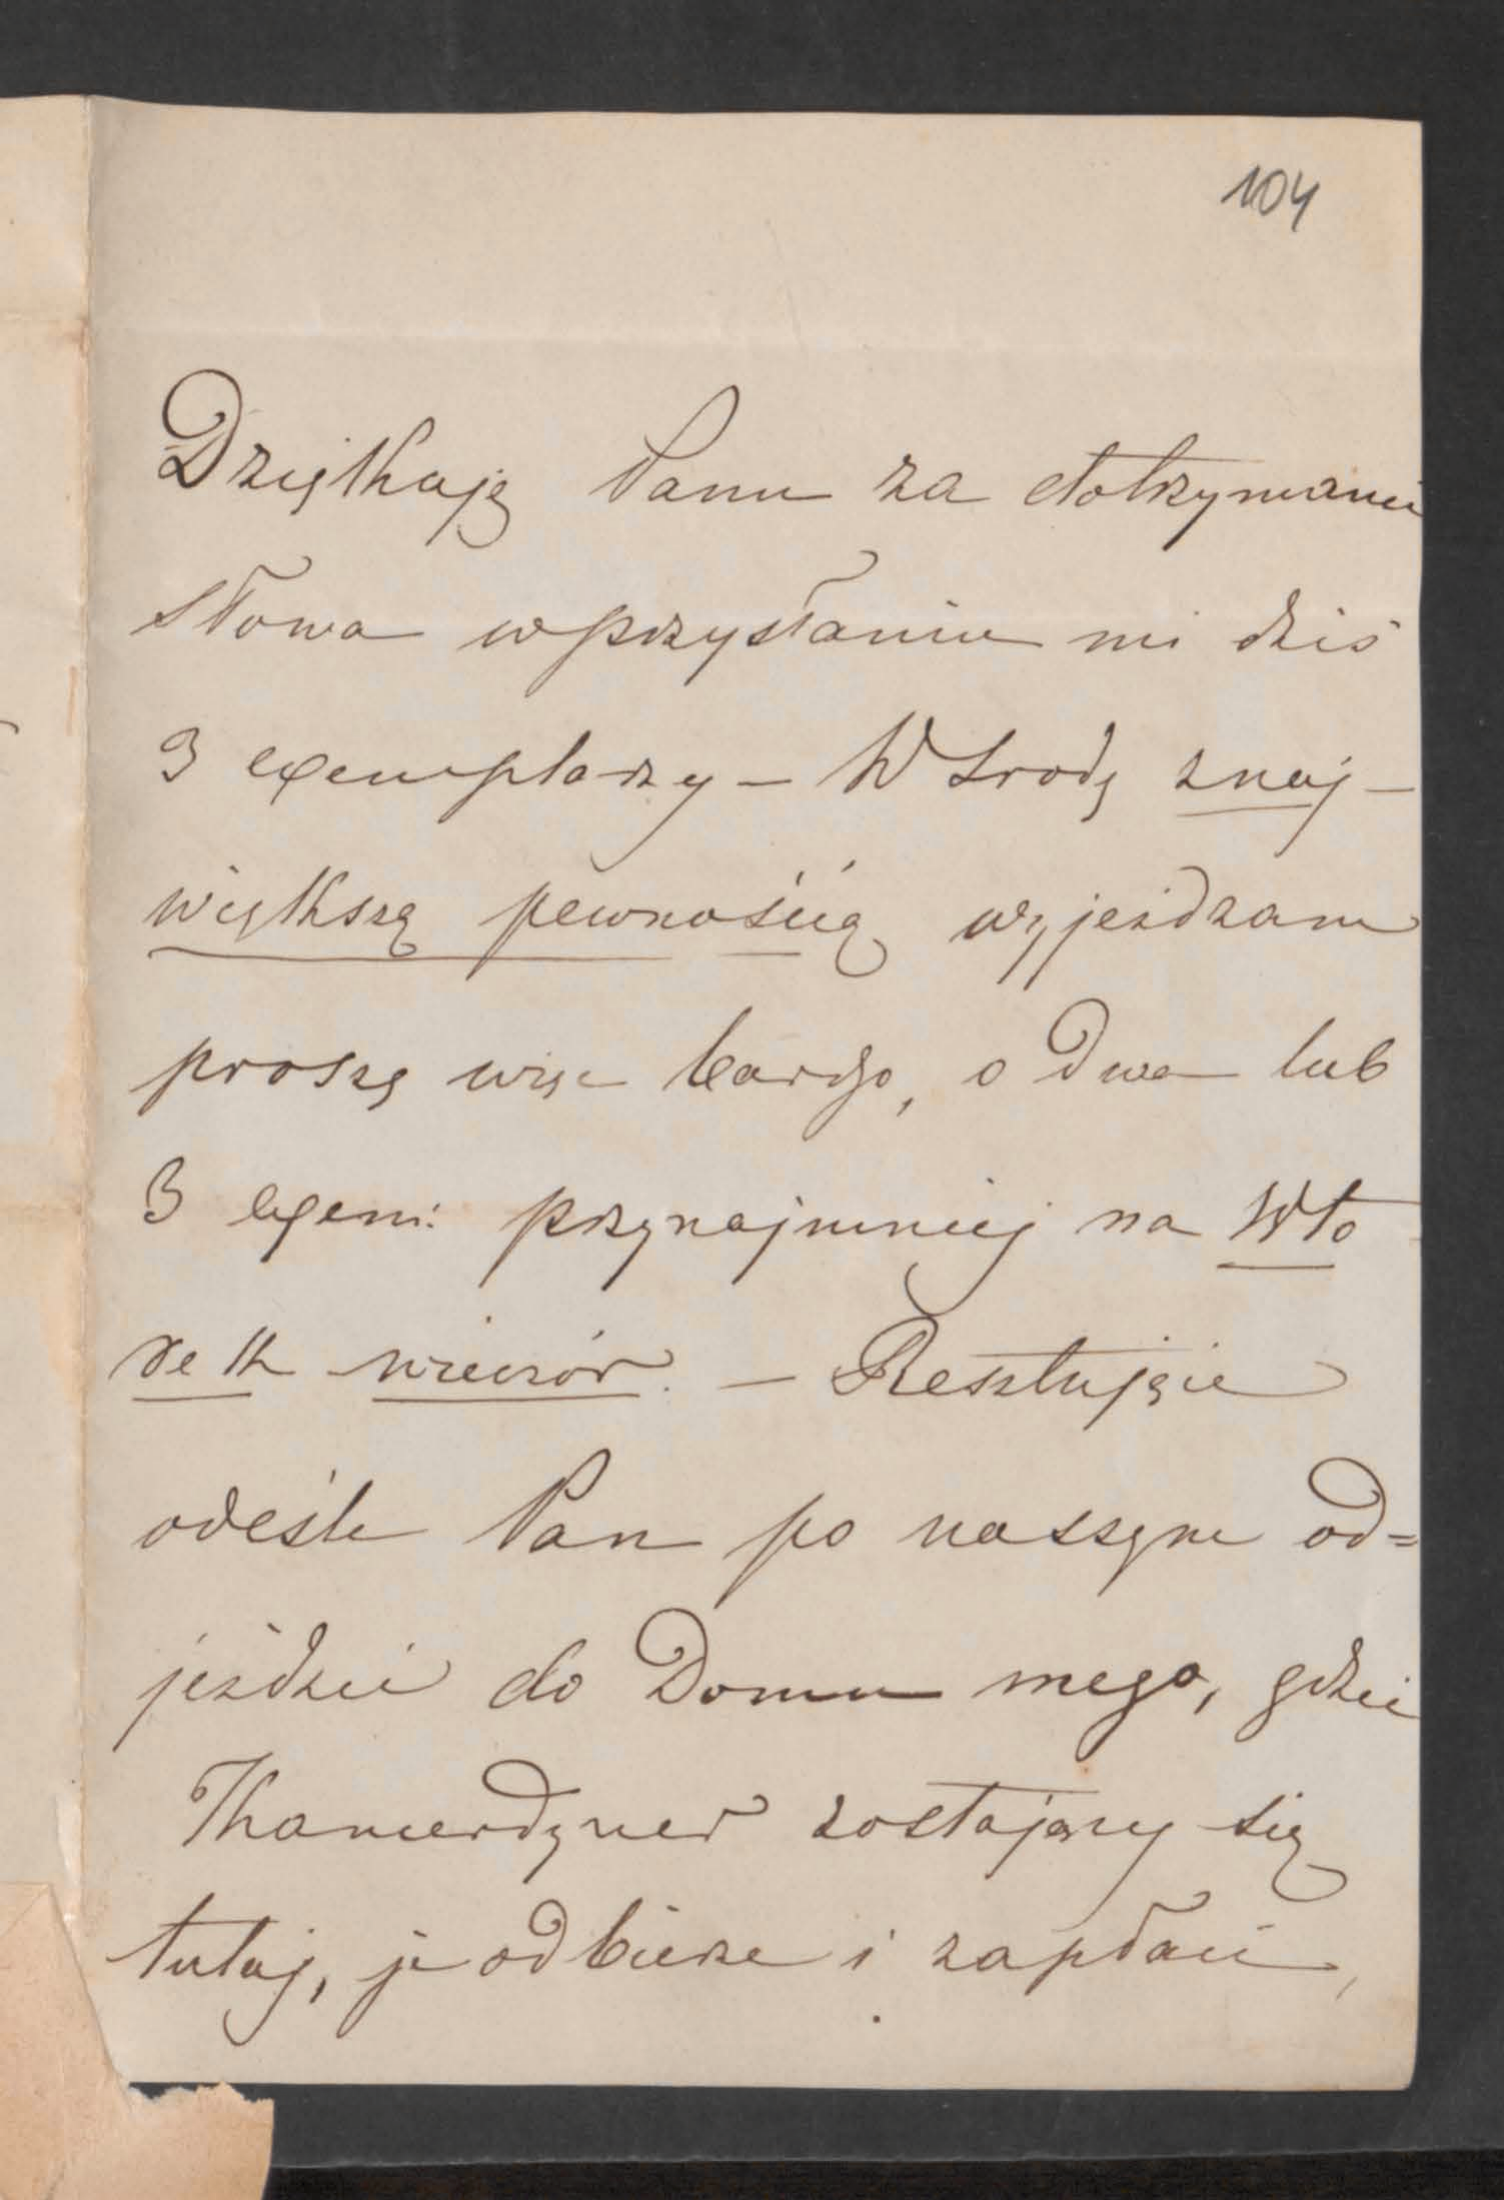 104
Dziękuję Panu za dotrzymanie
słowa w przysłaniu mi dziś
3 exemplarzy – W Srodę znaj-
większą pewnością wyjeżdzam
proszę więc bardzo, o Dwa lub
3 exem: przynajmniej na Wto
rek wieczór. – Resztujące
odeśle Pan po naszym od=
jeździe do Domu mego, gdzie
Kamerdyner zostający się
tutaj, je odbierze i zapłaci,